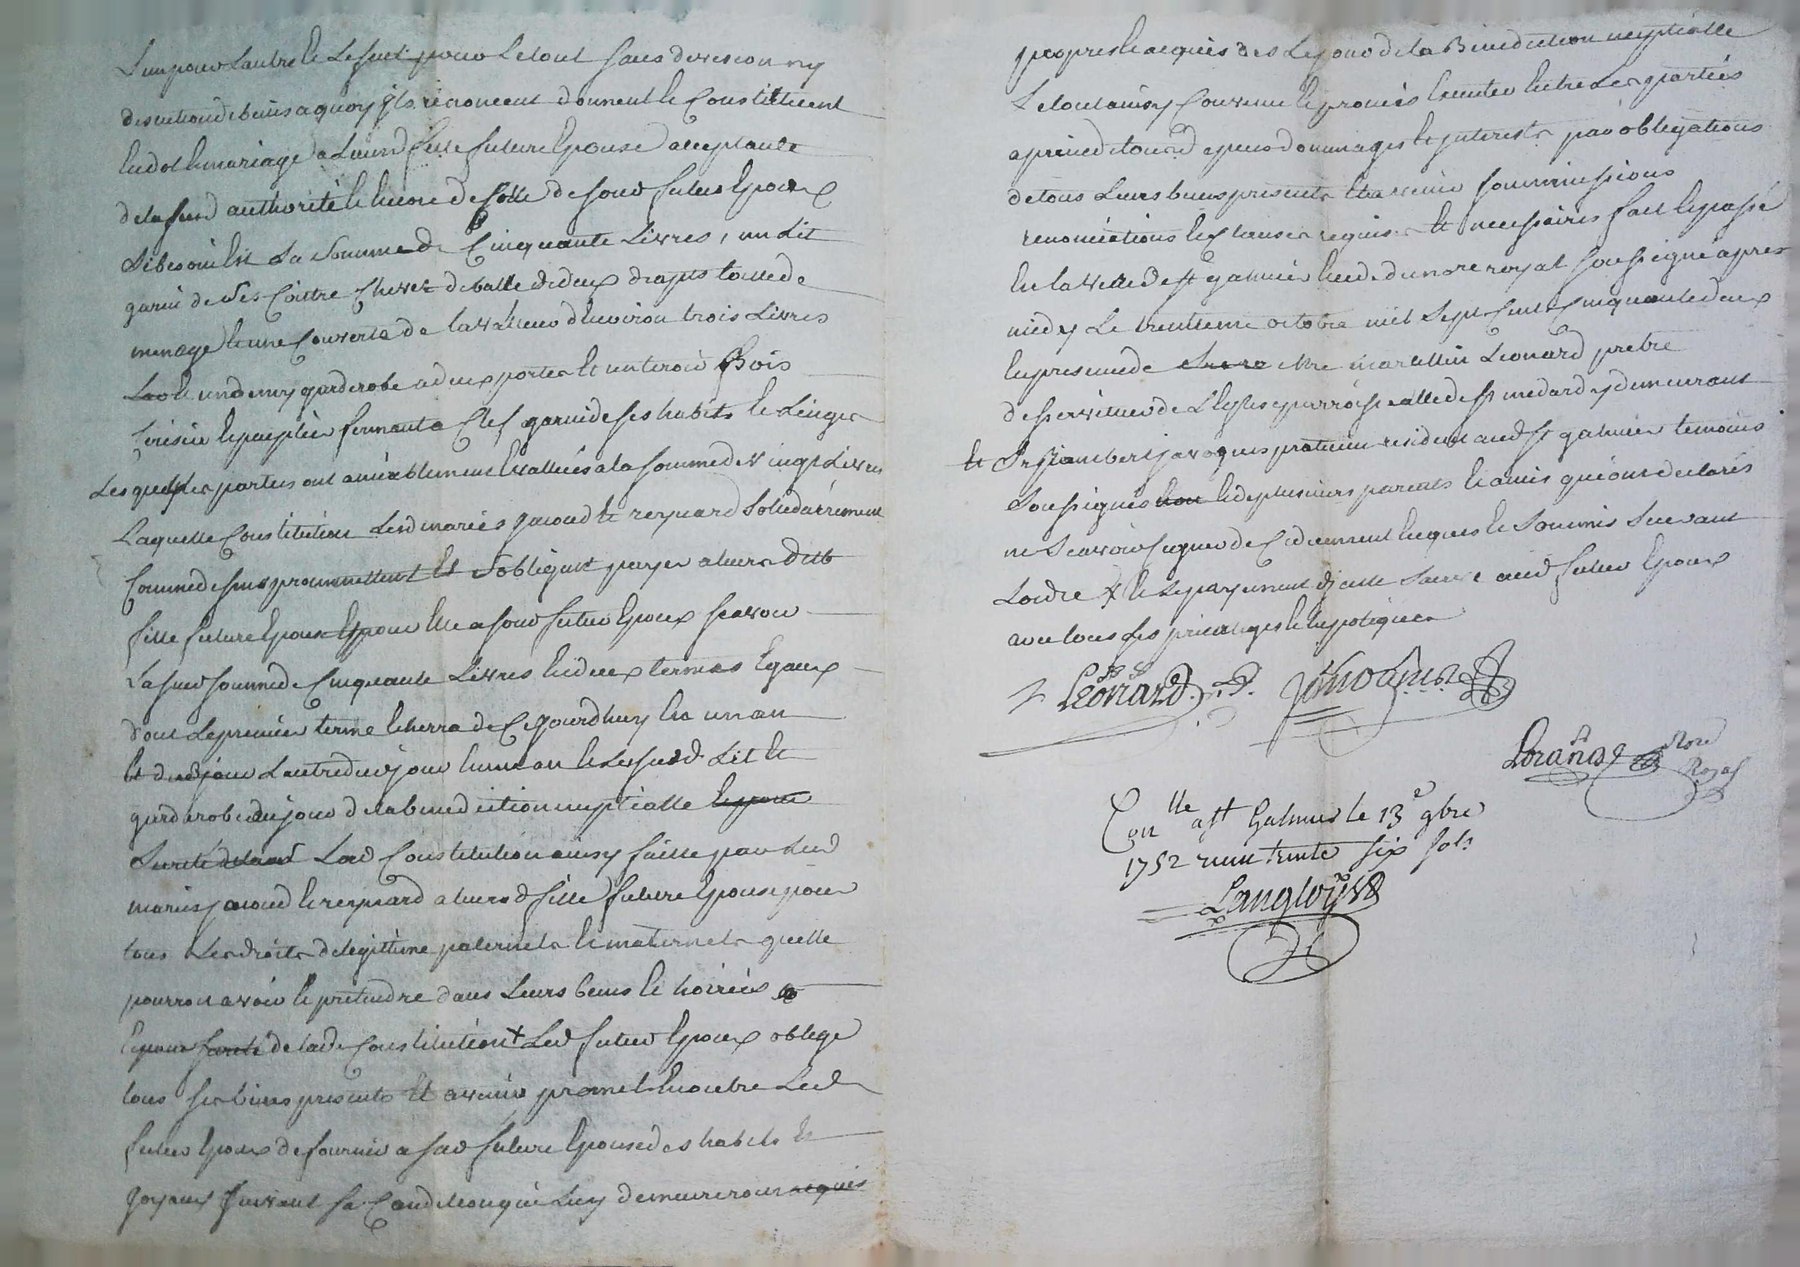 Lun pour Lautre et Le seul pour Le tout sans division ny
discution de biens a quoy ils renoncent donnent et Constituent
en dot et mariage a Leurd fille future Epouse acceptante
de la susd authorité et licence de celle de sond futur Epoux
si besoin est La Somme de Cinquante Livres, un Lit
garni de ses Coittre Chevet de balle de deux draps toille de
menage et une Couverte de la valleur d'Environ trois Livres
un demy garderobe a deux portes et un tiroir Bois
Cerisier et peuplier fermant a Clef garni de ses habits et Linges
Lesquelles parties ont amiablement Evalluées a la somme de vingt Livres
Laquelle Constitution Lesd mariés et reynard Solidairement
Comme dessus prommettent et s'obligent payer a leurd
fille future Epouse pour Elle a sond futur Epoux scavoir
La susd somme de Cinquante Livres en deux termes Egaux
dont Le premier terme Echerra de Cejourdhuy En un an
et dud jour Lautre dud jour En un an et Le susd Lit et
garderobe au jour de la benediction nuptialle
Lad Constitution ainsy faitte par Lesd
mariés et reynard a leurd fille future Epouse pour
tous Les droits de legitime paternels et maternels quelle
pourroit avoir et pretendre dans Leurs biens et hoiries
de lade Constitution + Led futur Epoux oblige
tous ses biens presents et avenir promet En outre Led
futur Epoux de fournir a sad future Epouse des habits et
Joyaux suivant sa Condition qui Luy demeureront acquis
propres et acquis des Le jour de la Benediction nuptialle
Le tout ainsy Convenu et promis Entre Les parties
a peine de tous depens dommages et interests par obligations
de tous Leurs biens presents et avenir soummissions
renonciations et Clauses requises et necessaires fait et passé
En la ville de st galmier Etude du nore royal soussigné apres
midy Le trentieme octobre mil Sept Cents Cinquante deux
En presence de Mre marcellin Léonard pretre
desserviteur de L'Eglise parroissialle de st medard y demeurant
et Sr praticien resident aud st galmier temoins
Soussignés et de plusieurs parents et amis qui ont declarés
ne Scavoir signer de Ce Enquis et Sommis Suivant
Lordre
avec tous Les privileges et hypotèques
Léonard
nore
Royal
Conlle a st Galmier le 13e 9bre
1752 trente six sols
Langloys